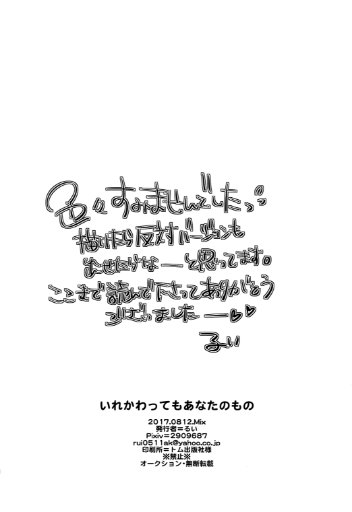 色々すみませんでしたっ
描けたら反対バージョンも
のせたいなーと思ってます。
ここまで読んで下さってありがとう
ございましたー♡♡
るい
いれかわってもあなたのもの
2017.0812.Mix
発行者=るい
Pixiv=2909687
rui0511ak@yahoo.co.jp
印刷所=トム出版社様
※禁止※
オークション・無断転載